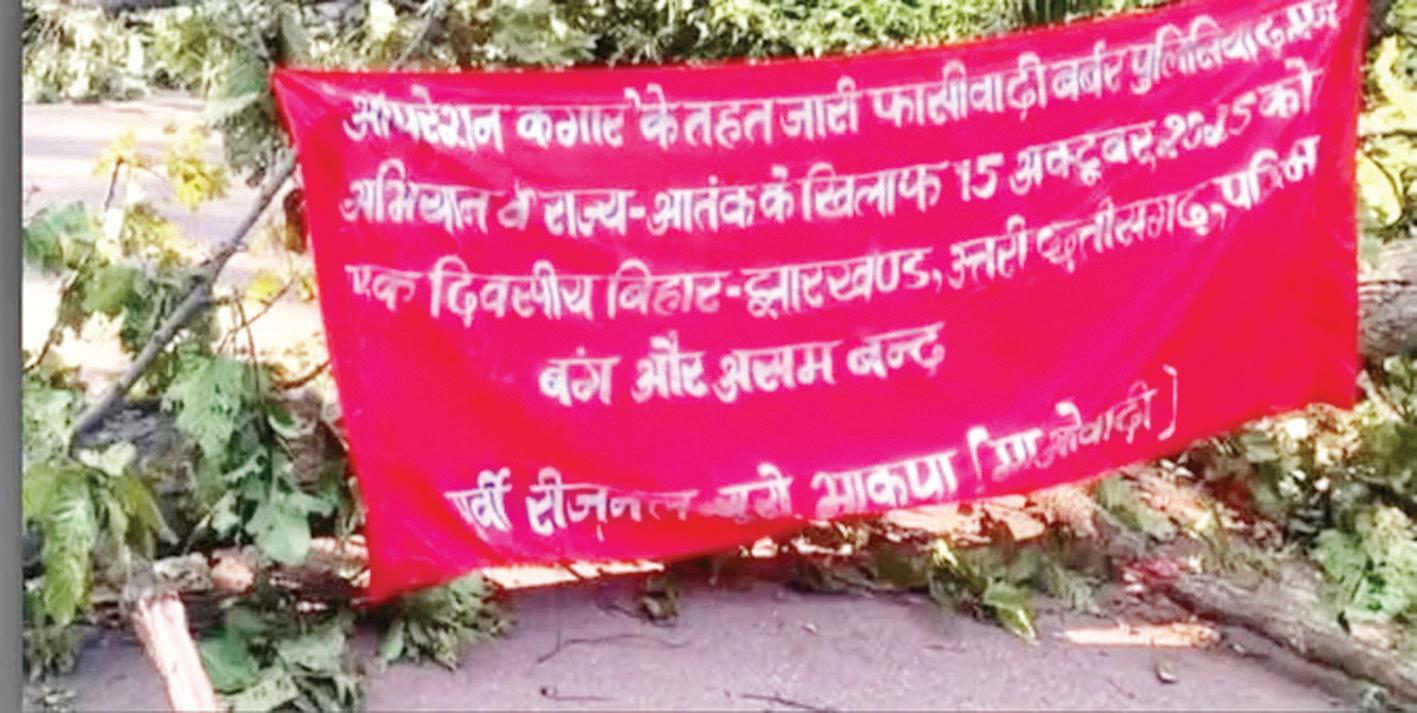 ऑपरेशन कगार के तहत जारी फासीवादी बर्बर पुलिसिया दमन
अभियान व राज्य-आतंक के खिलाफ 15 अक्टूबर, 2025 को
एक दिवसीय बिहार-झारखण्ड, उत्तरी छत्तीसगढ़, पश्चिम
बंग और असम बन्द
पूर्वी रीजनल ब्यूरो भाकपा [माओवादी]